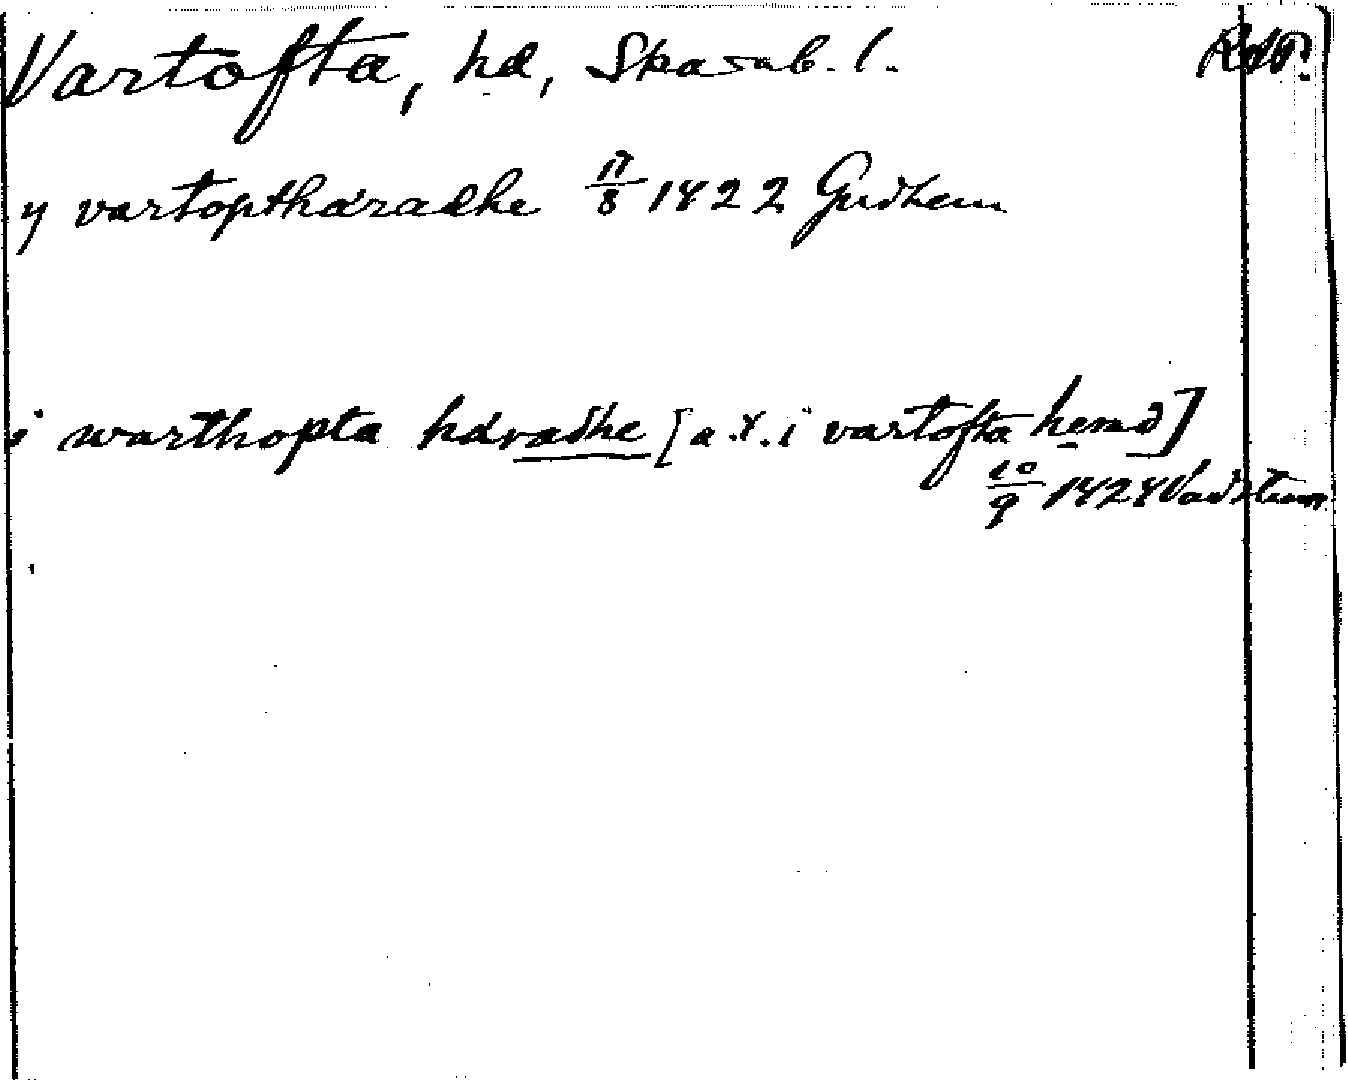 Vartofta, hd, Skarab. l.
y vartoptharadhe 11/8 1422 Gudhem
i warthopta hdradhe [a.x. i vartofta herad]
10/9 1424 Vadstena